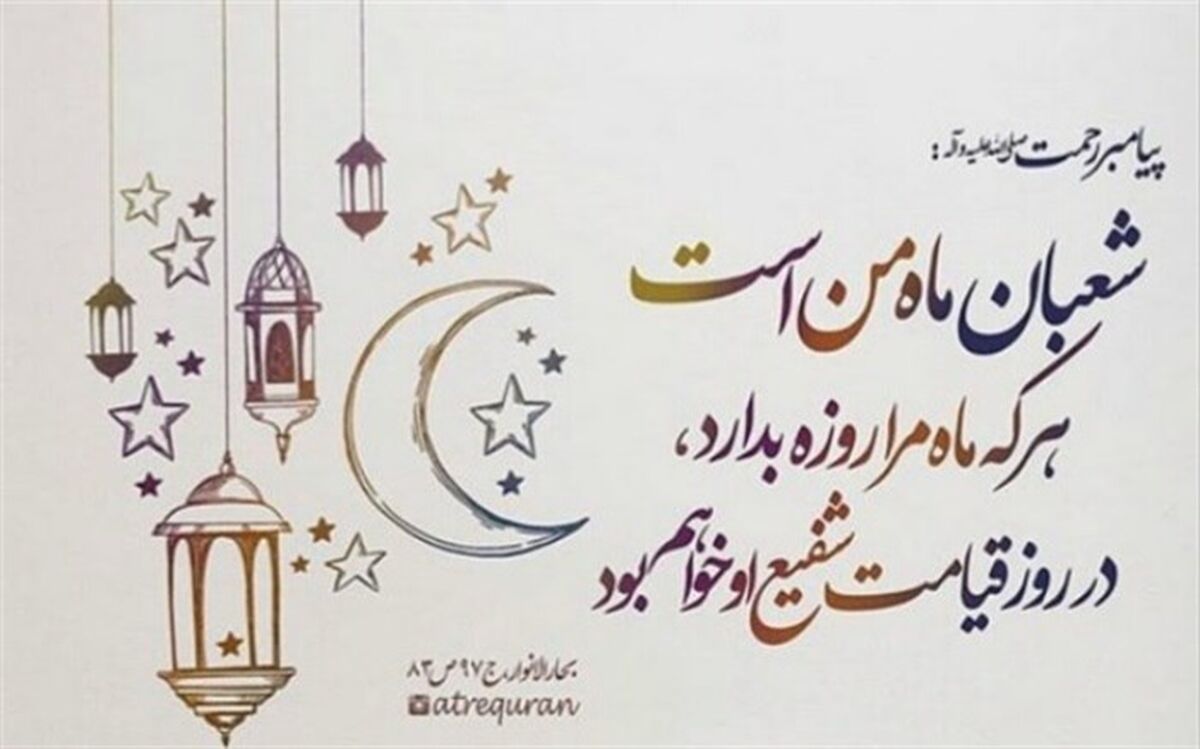 پیامبر رحمت صلی الله علیه و آله :
شعبان ماه من است
هر که ماه مرا روزه بدارد،
در روز قیامت شفیع او خواهم بود
بحارالانوار، ج ۹۷ ص ۸۳
@atrequran